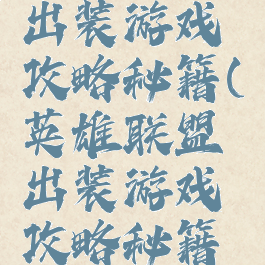 出装游戏
攻略秘籍(
英雄联盟
出装游戏
攻略秘籍